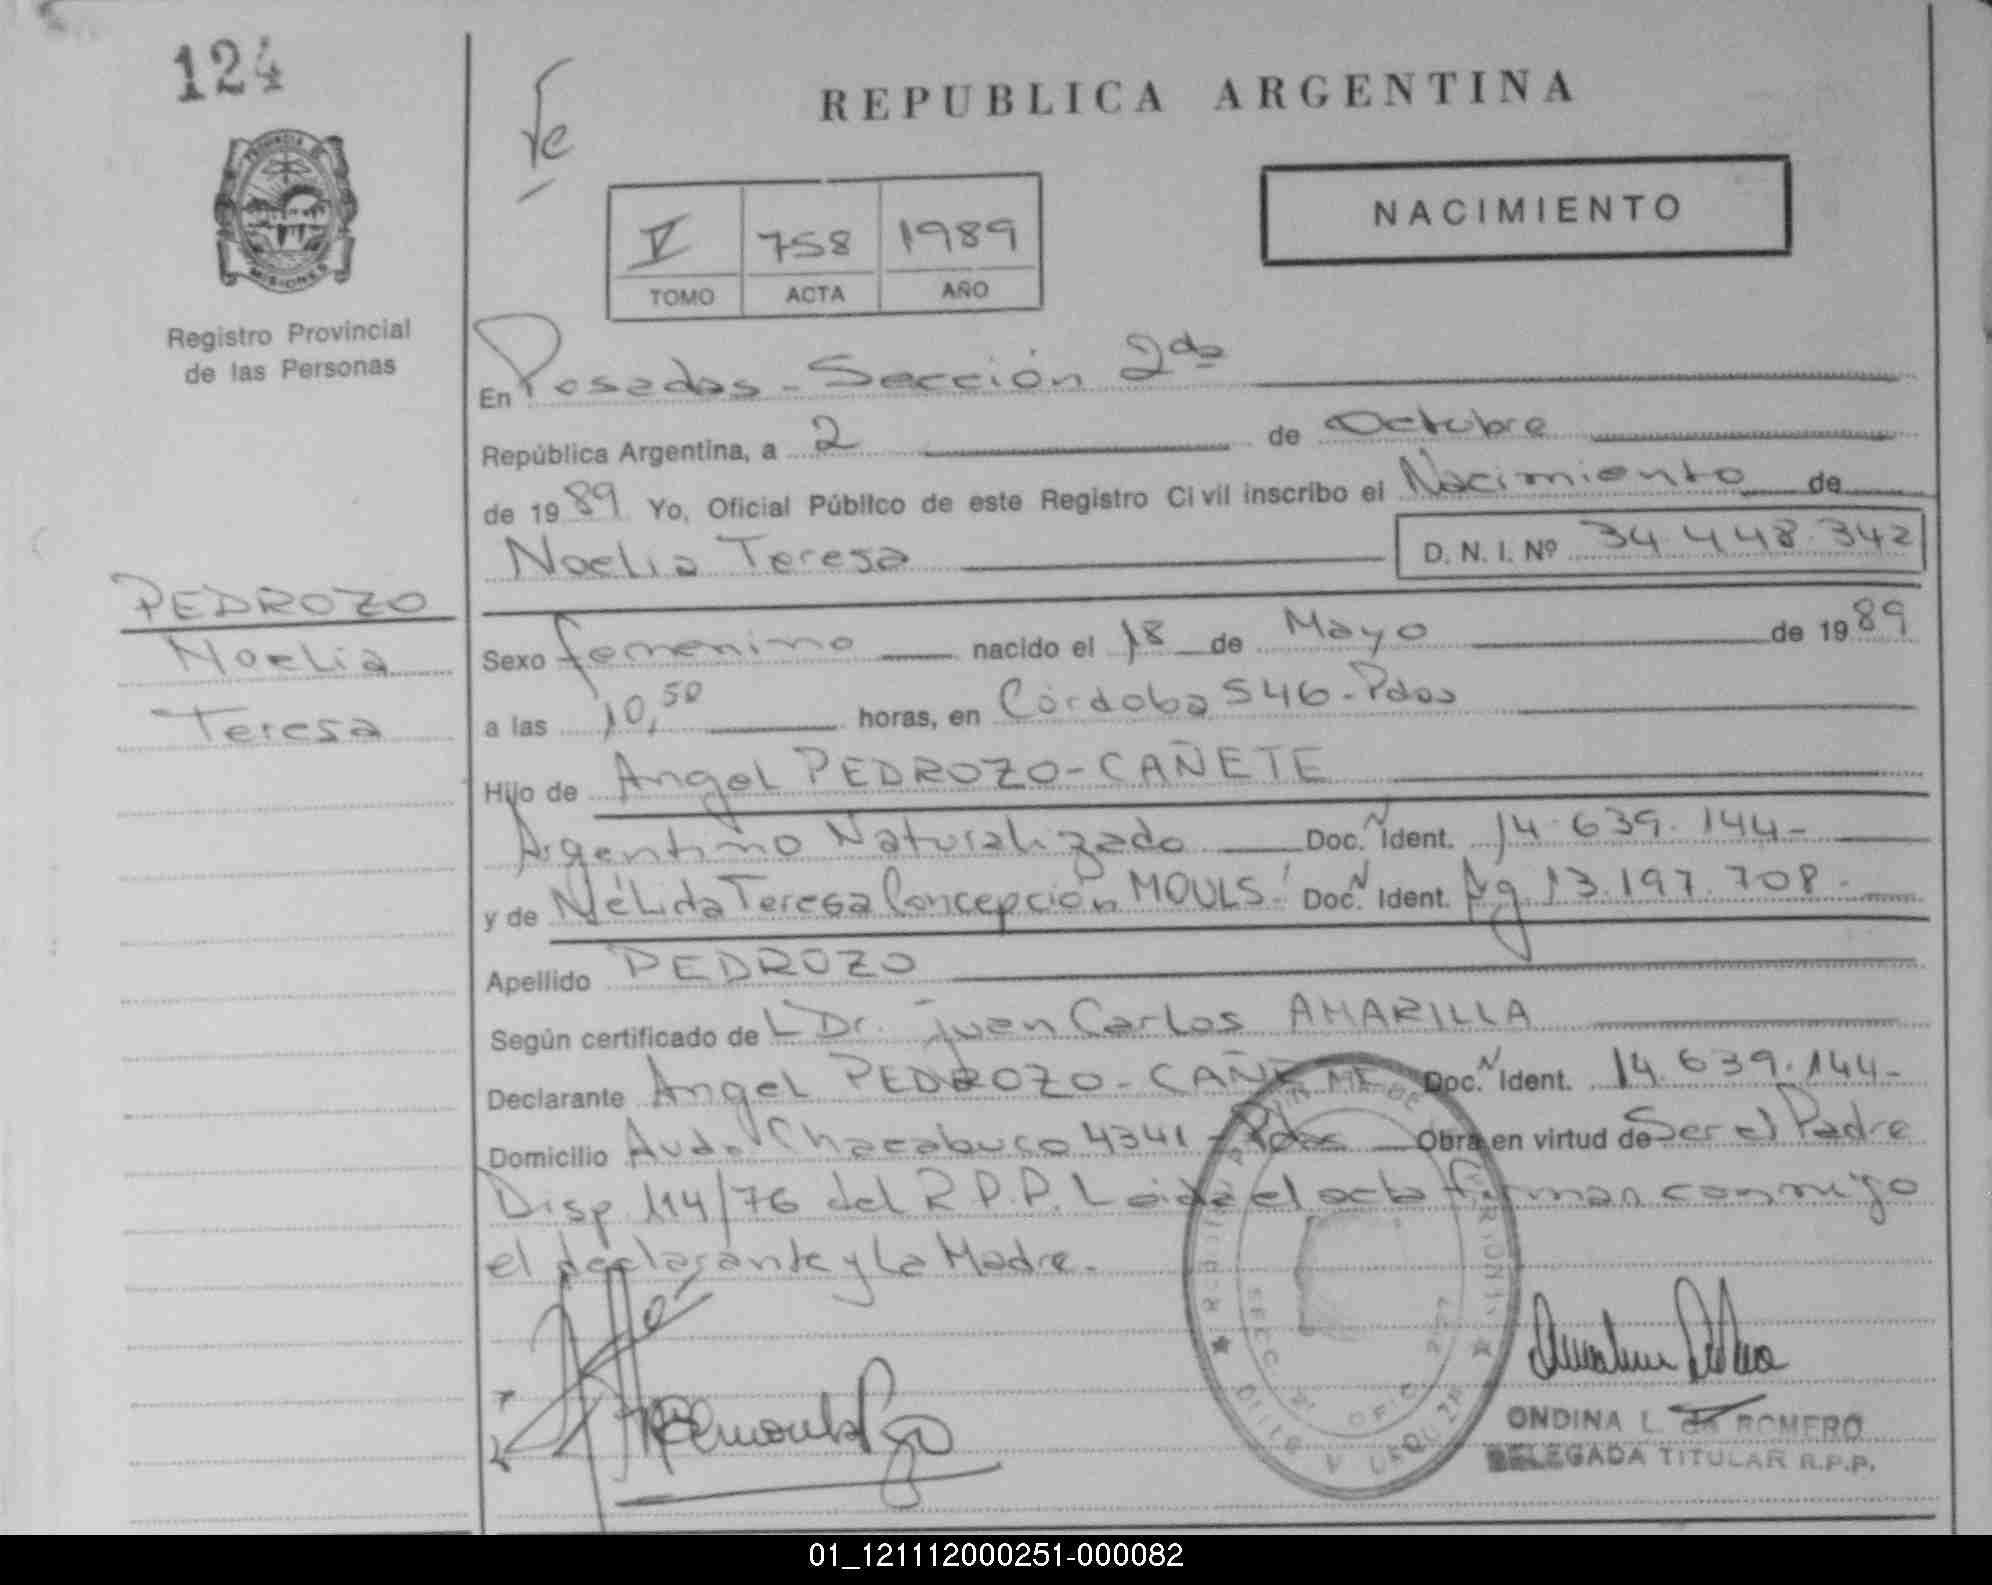 124
REPUBLICA ARGENTINA
NACIMIENTO
V 758 1989
TOMO ACTA AÑO
PROVINCIA DE MISIONES
Registro Provincial
de las Personas
En Posadas - Sección 2da
República Argentina, a 2 de Octubre
de 1989 Yo, Oficial Público de este Registro Civil inscribo el Nacimiento de
Noelia Teresa D. N. I. Nº 34.448.342
PEDROZO
Noelia
Teresa
Sexo femenino nacido el 18 de Mayo de 1989
a las 10,50 horas, en Córdoba 546 - Pdas
Hijo de Angel PEDROZO - CAÑETE
Argentino Naturalizado Doc. N Ident. 14.639.144-
y de Nélida Teresa Concepción MOULS Doc. N Ident. Ag 13.197.708.
Apellido PEDROZO
Según certificado de L Dr. Juan Carlos AMARILLA
Declarante Angel PEDROZO - CAÑETE Doc. N Ident. 14.639.144-
Domicilio Avda Chacabuco 4341 - Pdas Obra en virtud de Ser el Padre
Disp 114/76 del R.P.P. Leida el acta firman conmigo
el declarante y la Madre.
ONDINA L. de ROMERO
DELEGADA TITULAR R.P.P.
01_121112000251-000082